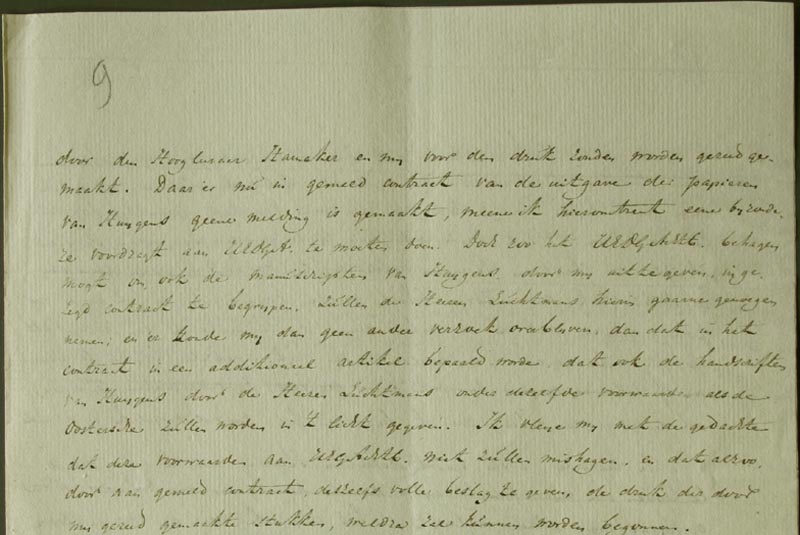 9
door den Hoogleraar Hamaker en my voor den druk zouden worden gereed ge-
maakt. Daar er nu in gemeld contract van de uitgave der papieren
van Huygens geene melding is gemaakt, meene ik hieromtrent eene byzonde-
re voordragt aan UEDGA. te moeten doen. Doch zoo het UEDGAchtb. behagen
mogt om ook de manuscripten van Huygens, door my uit te geven, in ge-
zegd contract te begrypen, zullen de Heeren Luchtmans hierin gaarne genoegen
nemen; en er konde my dan geen ander verzoek overblyven, dan dat in het
contract in een additioneel artikel bepaald worde, dat ook de handschriften
van Huygens door de Heeren Luchtmans onder dezelfde voorwaarden als de
Oostersche zullen worden in 't licht gegeven. Ik vleije my met de gedachte
dat deze voorwaarden aan UEDGAchtb. niet zullen mishagen, en dat alzoo,
door aan gemeld contract, deszelfs volle beslag te geven, de druk der door
my gereed gemaakte stukken, weldra zal kunnen worden begonnen.